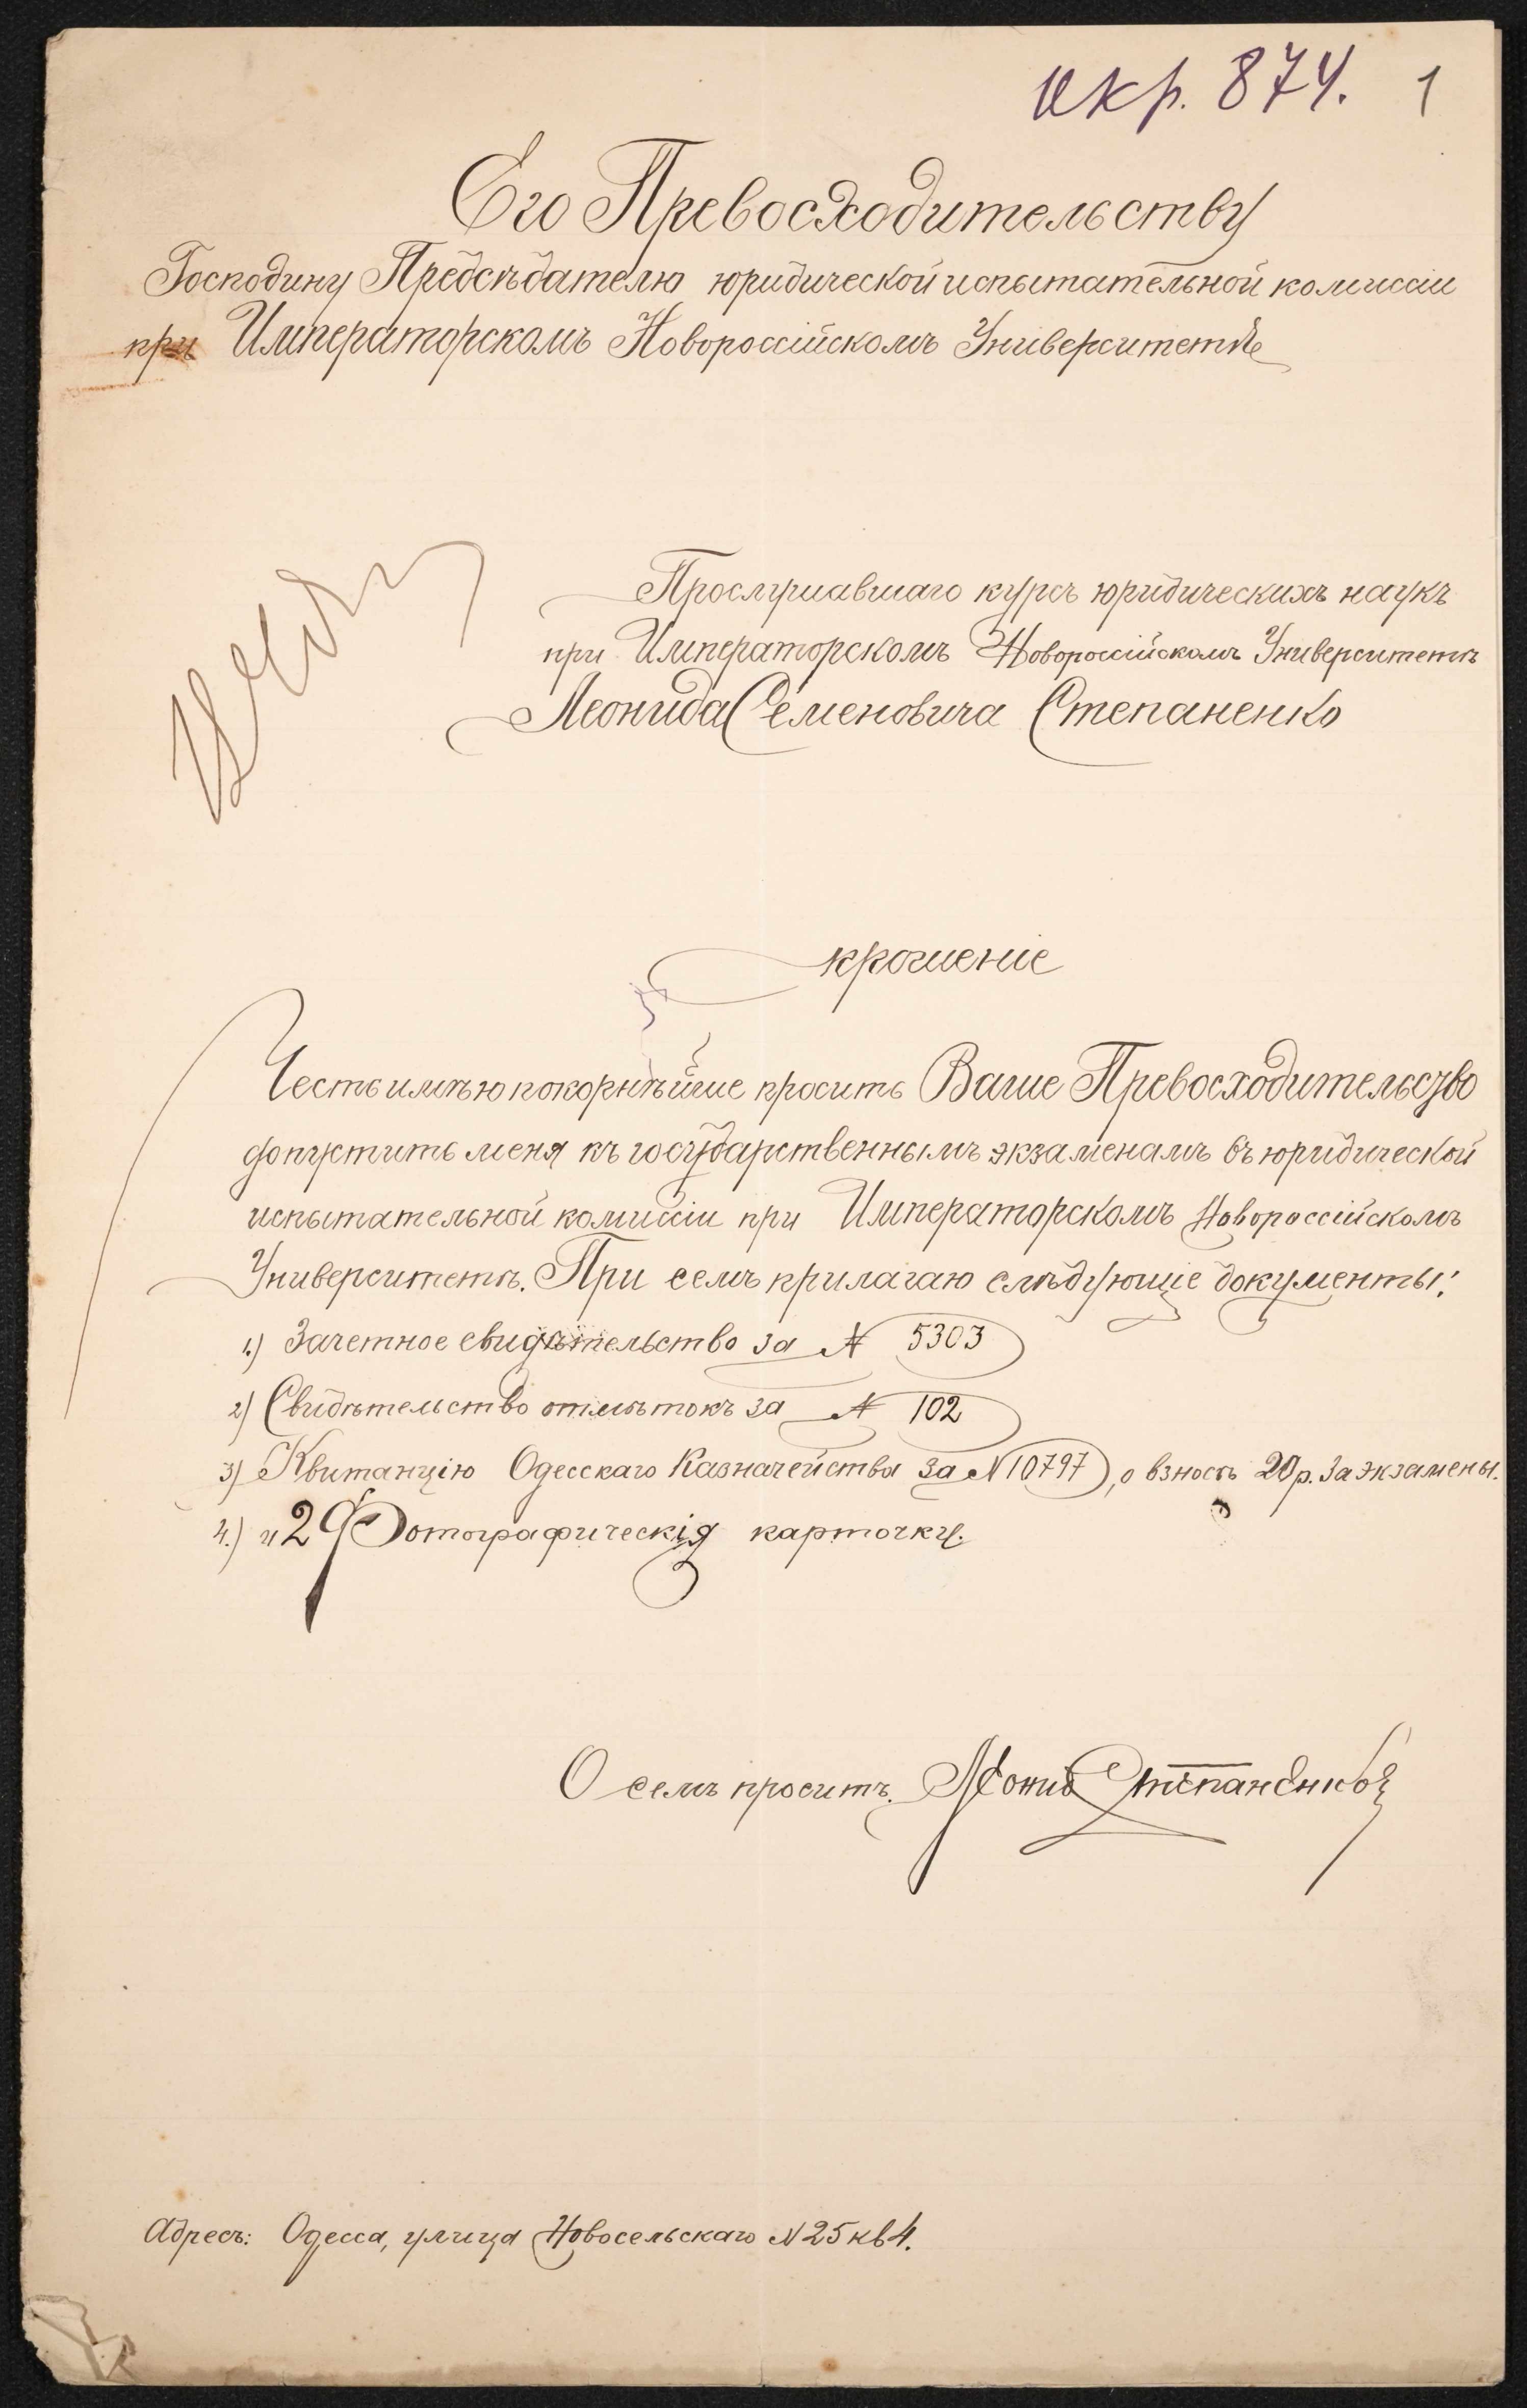 икр. 874. 1
Его Превосходительству
Господину Предсѣдателю юридической испытательной комиссіи
при Императорскомъ Новороссійскомъ Университетѣ
Прослушавшаго курсъ юридическихъ наукъ
при Императорскомъ Новороссійскомъ Университетѣ
Леонида Семеновича Степаненко
прошеніе
Честь имѣю покорнѣйше просить Ваше Превосходительство
допустить меня къ государственнымъ экзаменамъ въ юридической
испытательной комиссіи при Императорскомъ Новороссійскомъ
Университетѣ. При семъ прилагаю слѣдующіе документы:
1.) Зачетное свидѣтельство за № 5303
2) Свидѣтельство отмѣтокъ за № 102
3) Квитанцію Одесскаго Казначейства за N 10797, о взносѣ 20 р. за экзамены.
4.) и 2 Фотографическія карточки.
О семъ проситъ Леонид Степаненко
Адресъ: Одесса, улица Новосельскаго N 25 кв 4.